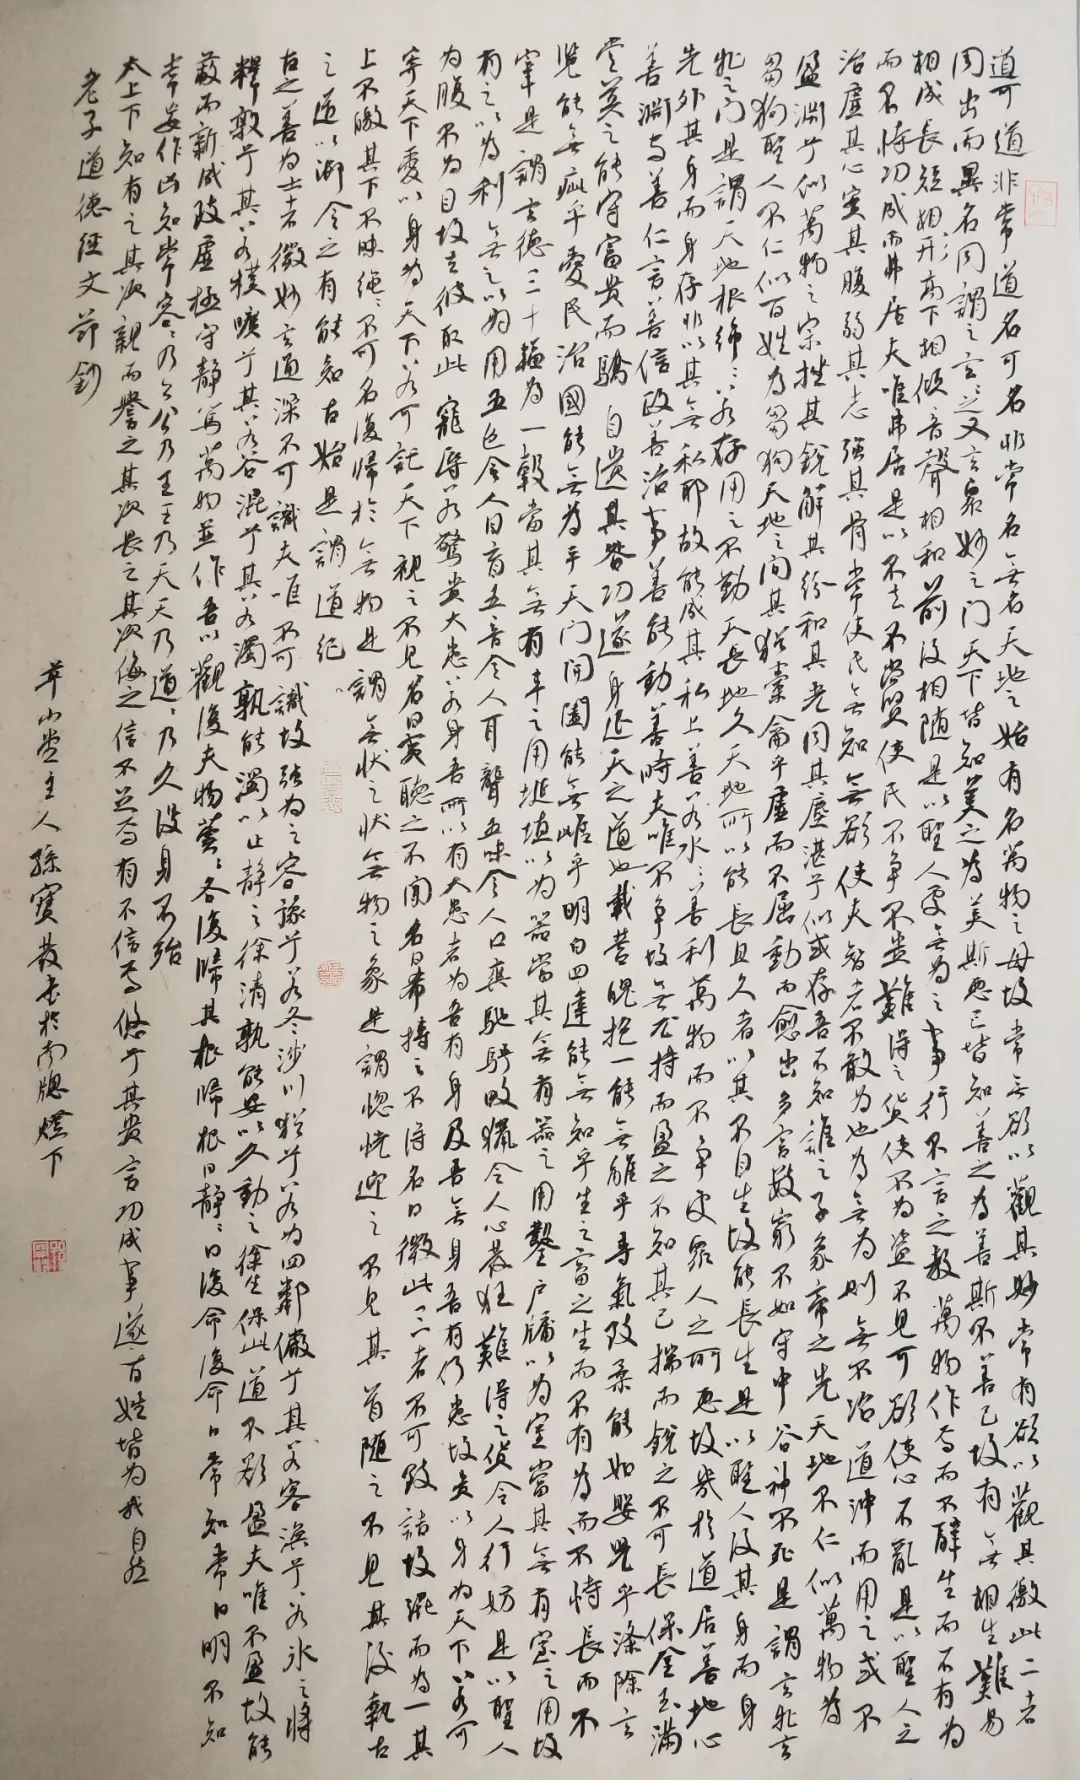 道可道非常道名可名非常名無名天地之始有名萬物之母故常無欲以觀其妙常有欲以觀其徼此二者
同出而異名同謂之玄玄之又玄眾妙之門天下皆知美之為美斯惡已皆知善之為善斯不善已故有無相生難易
相成長短相形高下相傾音聲相和前後相隨是以聖人處無為之事行不言之教萬物作焉而不辭生而不有為
而不恃功成而弗居夫唯弗居是以不去不尚賢使民不爭不貴難得之貨使不為盜不見可欲使心不亂是以聖人之
治虛其心實其腹弱其志強其骨常使民無知無欲使夫智者不敢為也為無為則無不治道沖而用之或不
盈淵兮似萬物之宗挫其銳解其紛和其光同其塵湛兮似或存吾不知誰之子象帝之先天地不仁似萬物為
芻狗聖人不仁似百姓為芻狗天地之間其猶橐龠乎虛而不屈動而愈出多言數窮不如守中谷神不死是謂玄牝玄
牝之門是謂天地根綿綿若存用之不勤天長地久天地所以能長且久者以其不自生故能長生是以聖人後其身而身
先外其身而身存非以其無私耶故能成其私上善若水水善利萬物而不爭處眾人之所惡故幾於道居善地心
善淵與善仁言善信政善治事善能動善時夫唯不爭故無尤持而盈之不知其已揣而銳之不可長保金玉滿
堂莫之能守富貴而驕自遺其咎功遂身退天之道也載營魄抱一能無離乎專氣致柔能如嬰兒乎滌除玄
覽能無疵乎愛民治國能無為乎天門開闔能無雌乎明白四達能無知乎生之畜之生而不有為而不恃長而不
宰是謂玄德三十輻為一轂當其無有車之用埏埴以為器當其無有器之用鑿戶牖以為室當其無有室之用故
有之以為利無之以為用五色令人目盲五音令人耳聾五味令人口爽馳騁畋獵令人心發狂難得之貨令人行妨是以聖人
為腹不為目故去彼取此寵辱若驚貴大患若身吾所以有大患者為吾有身及吾無身吾有何患故貴以身為天下若可
寄天下愛以身為天下若可託天下視之不見名曰夷聽之不聞名曰希摶之不得名曰微此三者不可致詰故混而為一其
上不皦其下不昧繩繩不可名復歸於無物是謂無狀之狀無物之象是謂惚恍迎之不見其首隨之不見其後執古
之道以御今之有能知古始是謂道紀
古之善為士者微妙玄通深不可識夫唯不可識故強為之容豫兮若冬涉川猶兮若為四鄰儼兮其若客渙兮若冰之將
釋敦兮其若樸曠兮其若谷混兮其若濁孰能濁以止靜之徐清孰能安以久動之徐生保此道不欲盈夫唯不盈故能
蔽而新成致虛極守靜篤萬物並作吾以觀復夫物芸芸各復歸其根歸根曰靜靜曰復命復命曰常知常曰明不知
常妄作凶知常容容乃公公乃王王乃天天乃道道乃久沒身不殆
太上下知有之其次親而譽之其次畏之其次侮之信不足焉有不信焉悠兮其貴言功成事遂百姓皆為我自然
老子道德經文節鈔
草山堂主人孫寶發書於南窗燈下